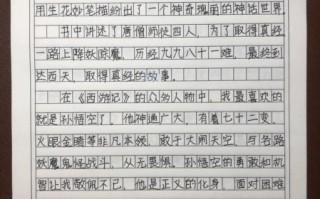 用生花妙笔描绘出了一个神奇瑰丽的神话世界。
书中讲述了唐僧师徒四人，为了取得真经
一路上降妖除魔，历经九九八十一难，最终到
达西天，取得真经的故事。
在《西游记》的众多人物中，我最喜欢的
就是孙悟空了，他神通广大，有着七十二变、
火眼金睛等非凡本领，敢于大闹天空，与各路
妖魔鬼怪战斗，从无畏惧，孙悟空的勇敢和机
智让我敬佩不已，他是正义的化身，面对困难